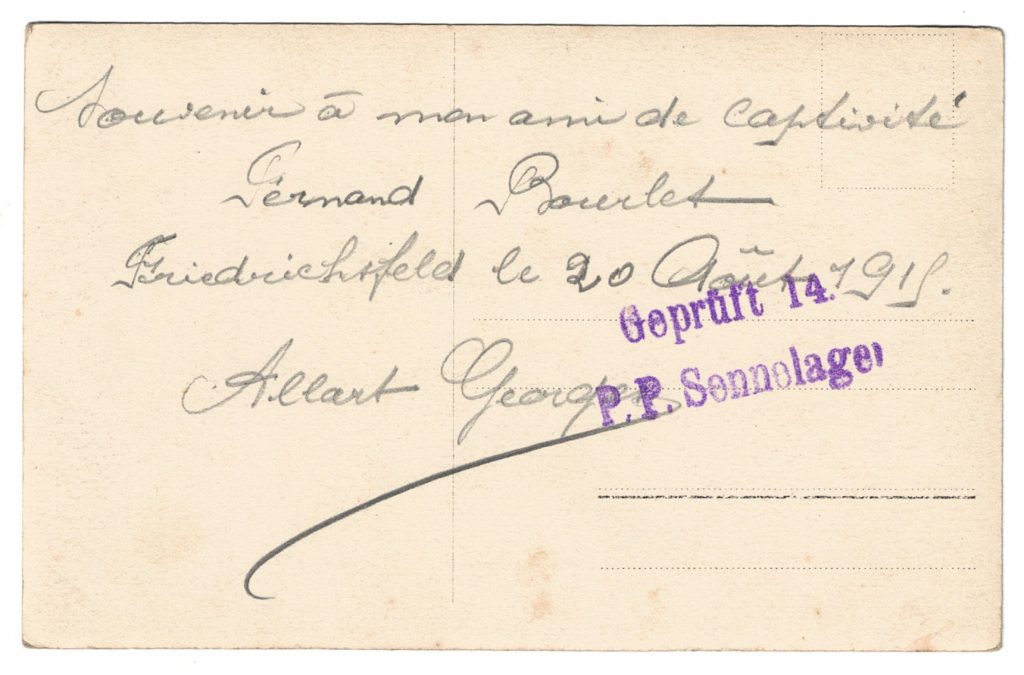 Souvenir à mon ami de captivité
Fernand Bourlet
Friedrichsfeld le 20 Août 1915.
Geprüft 14.
Allart Georges
P. P. Sennelager